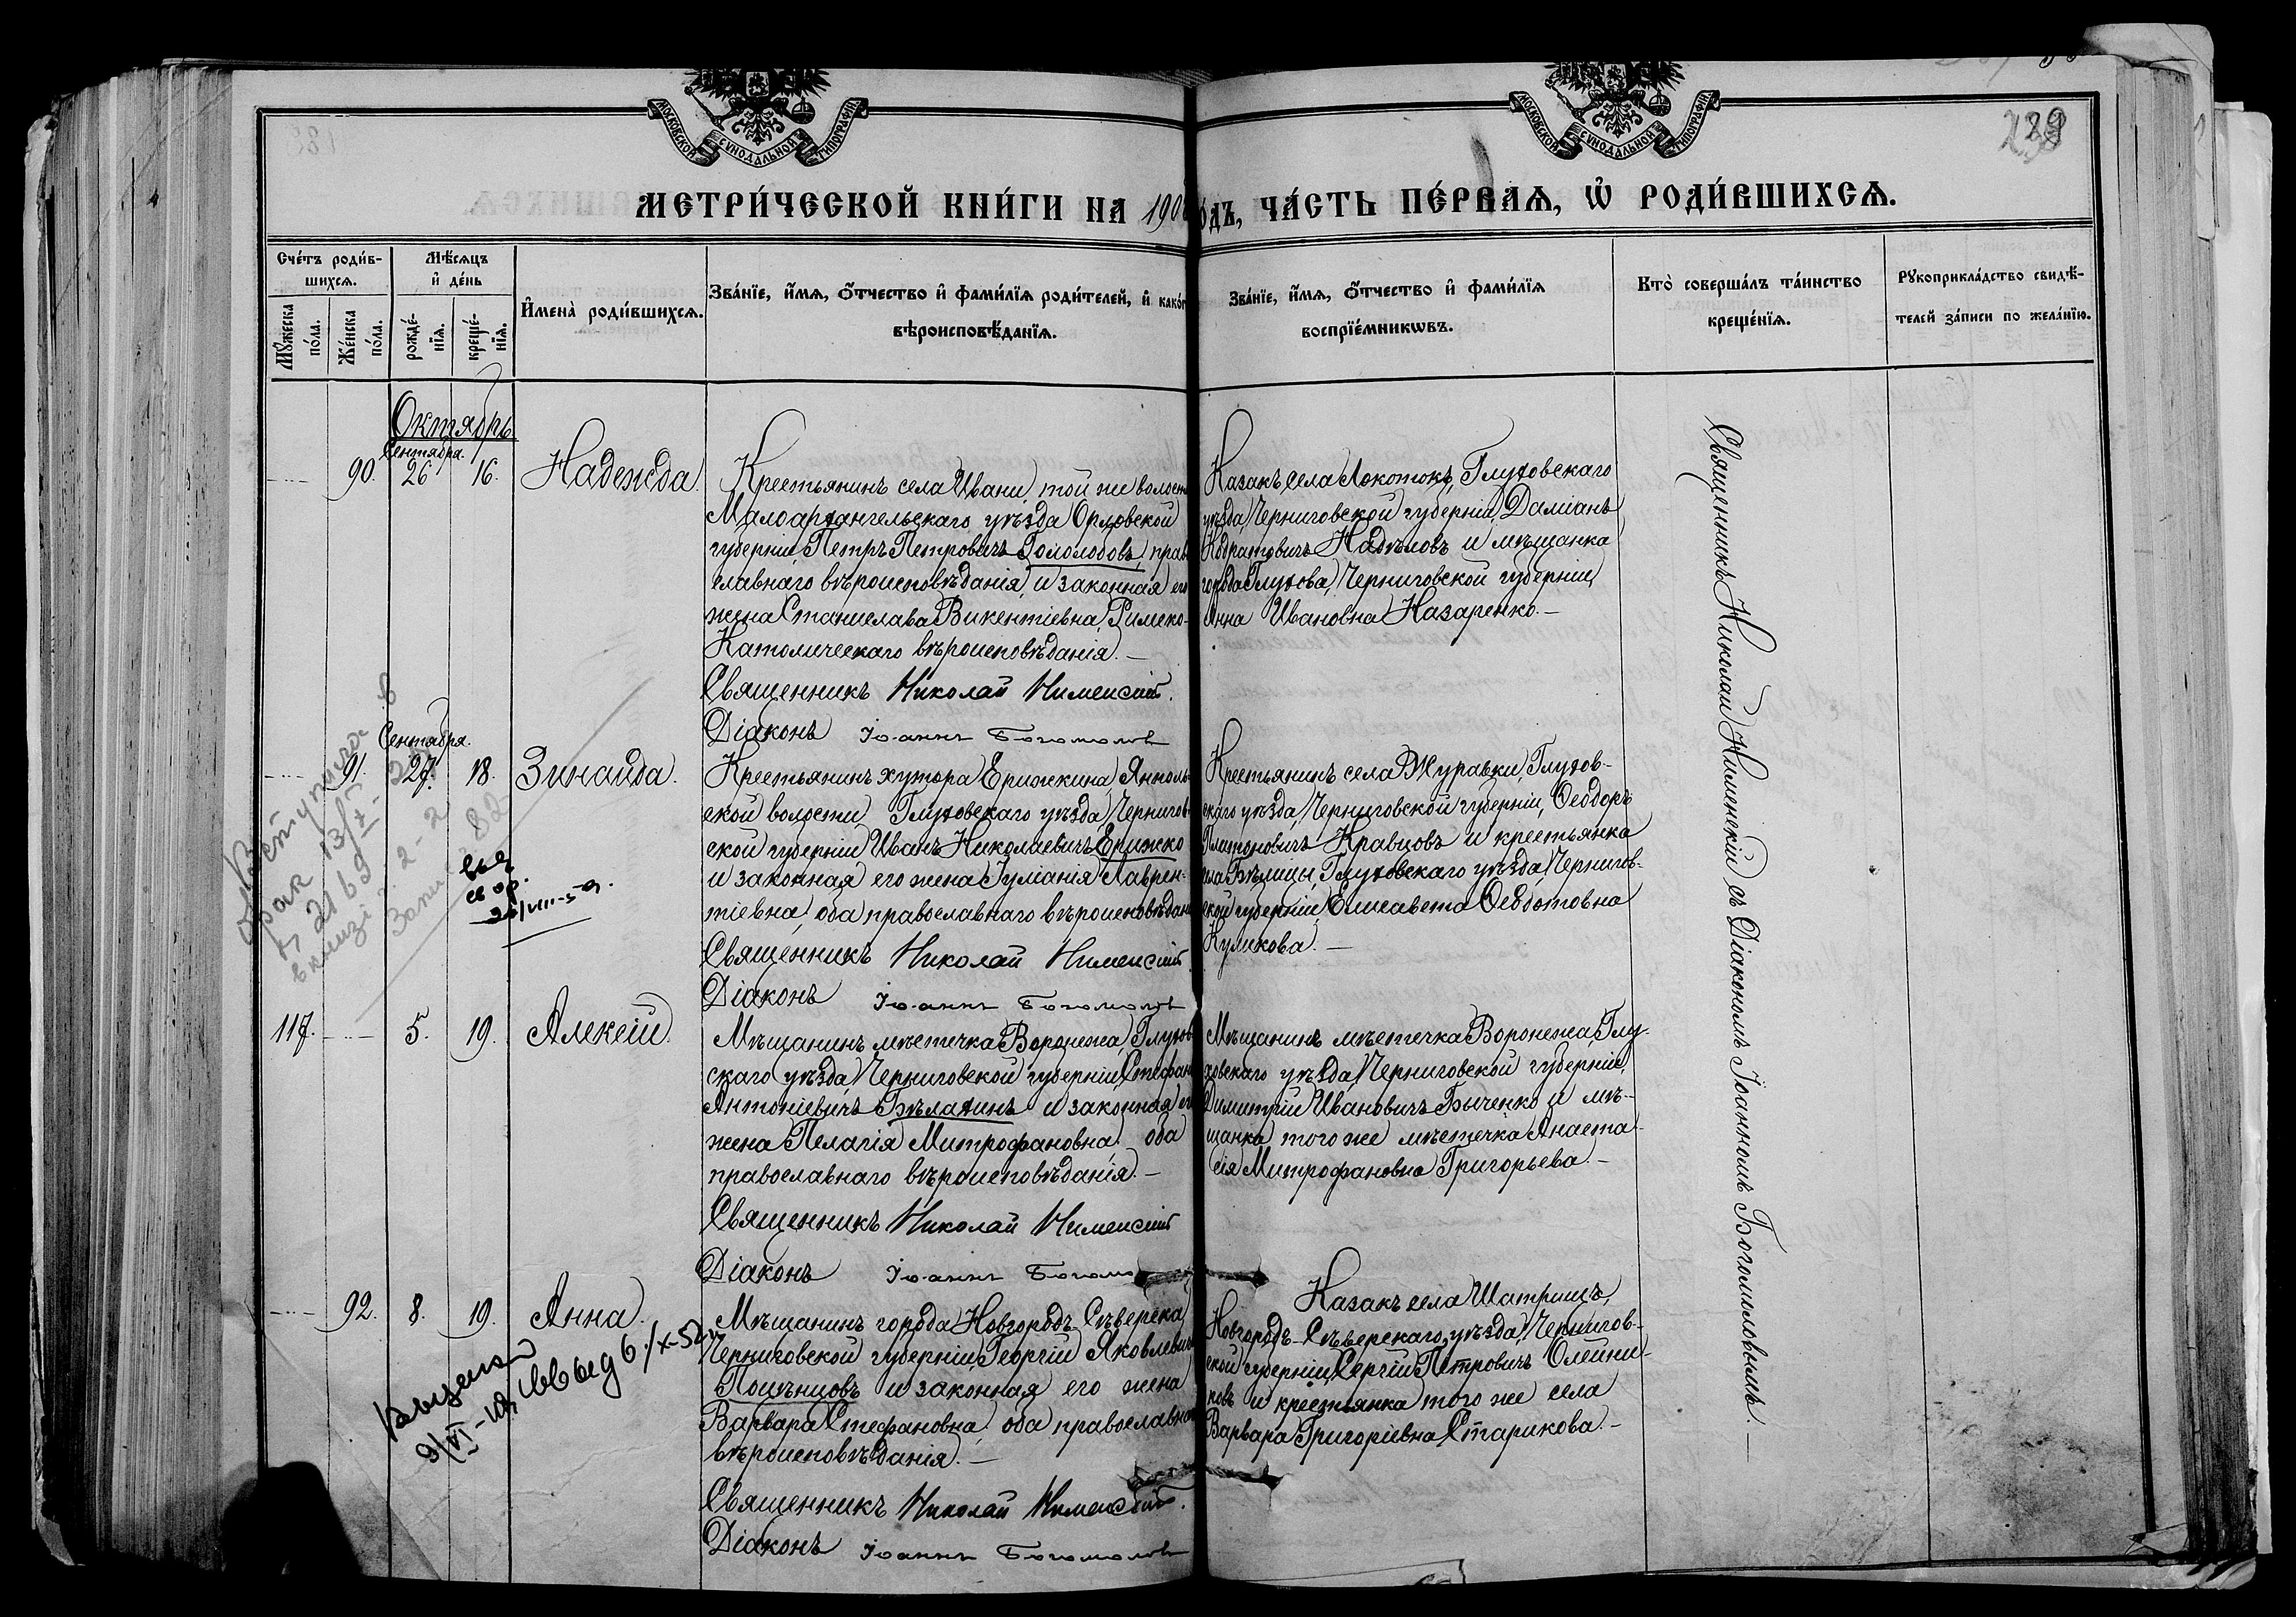 МОСКОВСКОЙ СУНОДАЛЬНОЙ ТИПОГРАФІИ.
МОСКОВСКОЙ СУНОДАЛЬНОЙ ТИПОГРАФІИ.
МЕТРИ́ЧЕСКОЙ КНИ́ГИ НА 190
ОДЪ, ЧА́СТЬ ПЕ́РВАѦ, Ѡ РОДИ́ВШИХСѦ.
Сче́тъ роди́в-
шихсѧ.
Мꙋ́жеска
по́ла.
Же́нска
по́ла.
Мѣ́сѧцъ
и҆ де́нь
рожде́-
нїѧ.
креще́-
нїѧ.
И҆мена̀ роди́вшихсѧ.
Зва́нїе, и҆́мѧ, ѻ҆́тчество и҆ фами́лїѧ роди́телей, и҆ како́г
вѣроисповѣ́данїѧ.
Зва́нїе, и҆́мѧ, ѻ҆́тчество и҆ фами́лїѧ
воспрїе́мникѡвъ.
Кто̀ соверша́лъ та́инство
креще́нїѧ.
Рꙋкоприкла́дство свидѣ́-
телей за́писи по жела́нїю.
Октябрь
Сентября.
90. 26 16. Надежда.
Крестьянинъ села Ивани, той же волости
Малоархангельскаго уѣзда Орловской
губерніи, Петръ Петровичъ Гололобовъ, право
славнаго вѣроисповѣданія, и законная его
жена Станислава Викентіевна, Римско-
Католическаго вѣроисповѣданія. —
Священникъ Николай Нименскій.
Діаконъ Іоаннъ Богомолов
Казакъ села Локотокъ, Глуховскаго
уѣзда, Черниговской губерніи, Даміанъ
Кодратовичъ Надѣловъ и мѣщанка
города Глухова, Черниговской губерніи,
Анна Ивановна Назаренко. —
Сентября.
91. 27. 18. Зинаида.
Крестьянинъ хутора Ерижкина, Янполь
ской волости Глуховскаго уѣзда, Чернигов-
ской губерніи Иванъ Николаевичъ Ерижко
и законная его жена Гуманія Лаврен-
тіевна, оба православнаго вѣроисповѣдан
Священникъ Николай Нименскій
Діаконъ Іоаннъ Богомолов
Крестьянинъ села Журавки, Глухов-
скаго уѣзда, Черниговской губерніи, Ѳеодоръ
Платоновичъ Кравцовъ и крестьянка
села Бѣлицы, Глуховскаго уѣзда, Чернигов-
ской губерніи, Елисавета Ѳедотовна
Куликова. —
117. 5. 19. Алексій.
Мѣщанинъ мѣстечка Воронежа, Глухов
скаго уѣзда, Черниговской губерніи, Стефан
Антоніевичъ Бѣлахинъ и законная его
жена Пелагія Митрофановна, оба
православнаго вѣроисповѣданія. —
Священникъ Николай Нименскій
Діаконъ Іоаннъ Богомо
Мѣщанинъ мѣстечка Воронежа, Глу-
ховскаго уѣзда, Черниговской губерніи,
Димитрій Ивановичъ Быченко и мѣ-
щанка того же мѣстечка Анаста-
сія Митрофановна Григорьева. —
92. 8. 19. Анна.
Мѣщанинъ города Новгородъ-Сѣверска
Черниговской губерніи, Георгій Яковлевич
Пошънцовъ и законная его жена
Варвара Стефановна, оба православнаго
вѣроисповѣданія. —
Священникъ Николай Нименскій.
Діаконъ Іоаннъ Богомолов
Казакъ села Шатрищъ,
Новгородъ-Сѣверскаго уѣзда, Чернигов-
ской губерніи, Сергій Петровичъ Олейни-
ковъ и крестьянка того же села
Варвара Григоріевна Старикова. —
Священникъ Николай Нименскій съ Діакономъ Іоанномъ Богомоловымъ. —